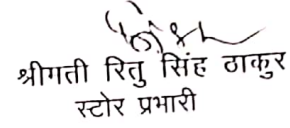 श्रीगती रितु सिंह ठाकुर
स्टोर प्रभारी